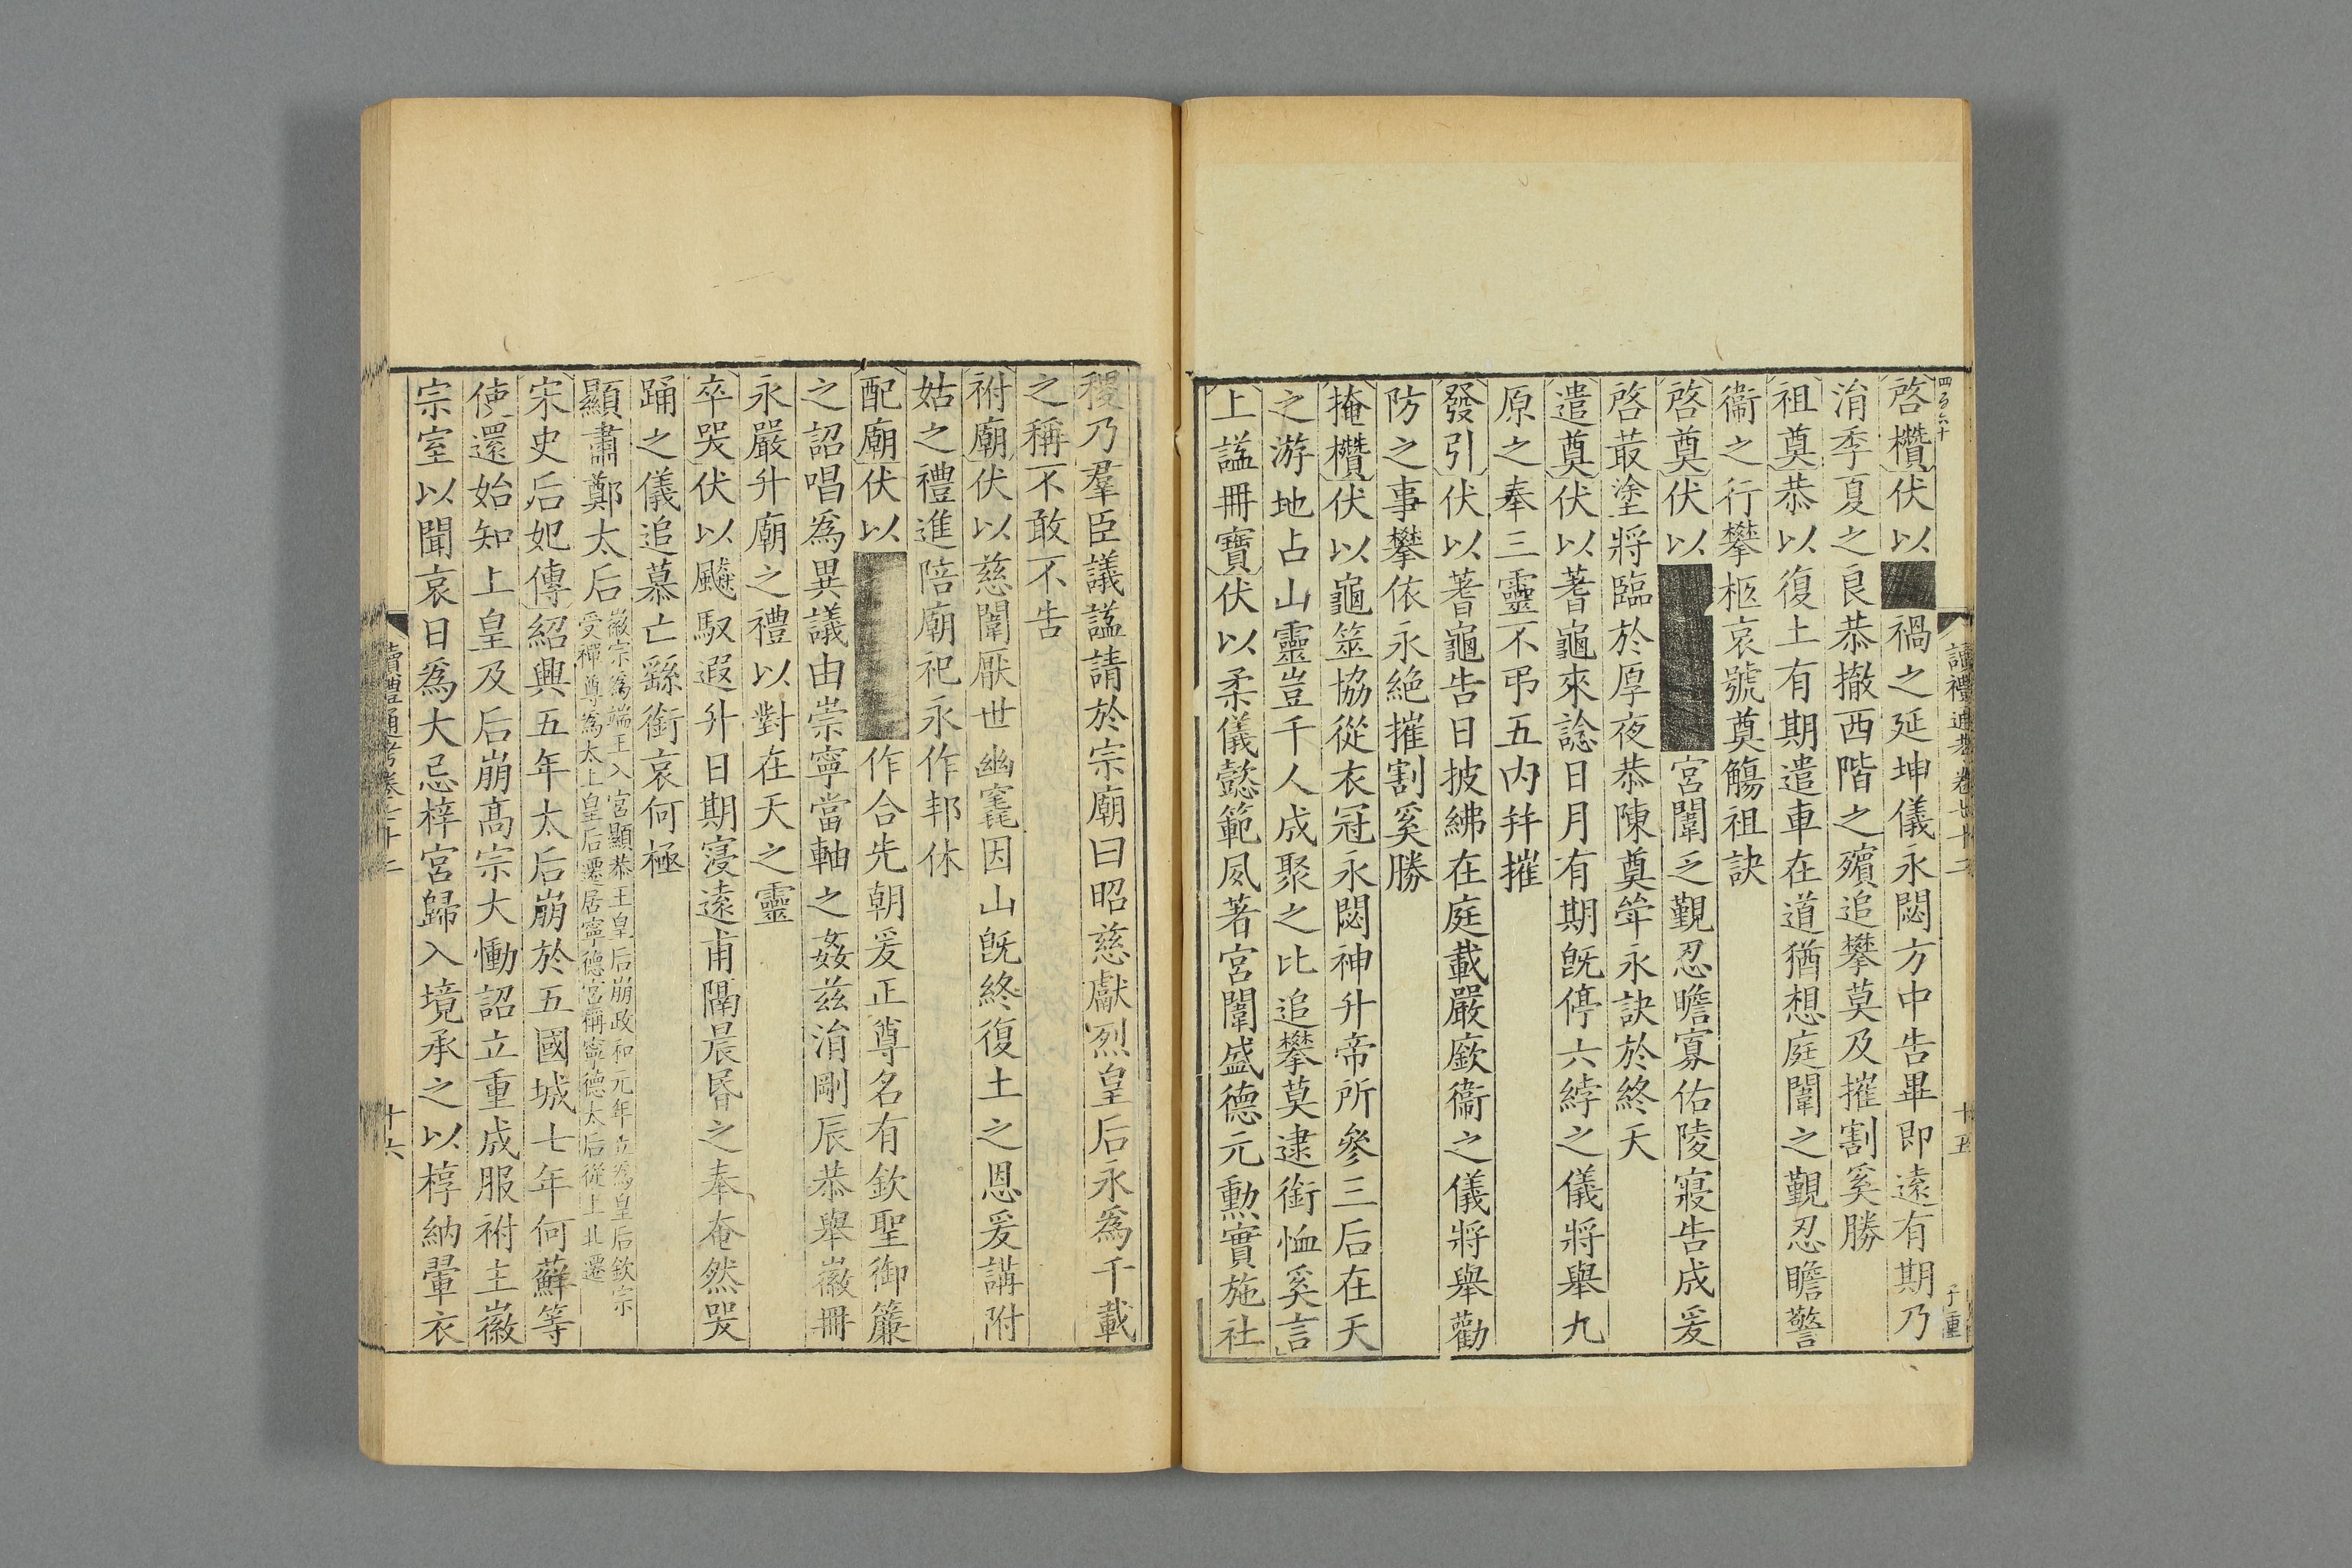 四百六十
讀禮通考 卷七十二 十五
啓欑伏以■禍之延坤儀永閟方中告畢即遠有期乃
涓季夏之良恭撤西階之殯追攀莫及摧割奚勝
祖奠恭以復土有期遣車在道猶想庭闈之覲忍瞻警
衞之行攀柩哀號奠觴祖訣
啓奠伏以■■■■宮闈乏覲忍瞻寡佑陵寢告成爰
啓菆塗將臨於厚夜恭陳奠斝永訣於終天
遣奠伏以蓍龜來諗日月有期旣停六綍之儀將舉九
原之奉三靈不弔五内幷摧
發引伏以蓍龜告日披紼在庭載嚴廞衞之儀將舉勸
防之事攀依永絶摧割奚勝
掩欑伏以龜筮協從衣冠永閟神升帝所參三后在天
之游地占山靈豈千人成聚之比追攀莫逮銜恤奚言
上諡冊寶伏以柔儀懿範夙著宮闈盛德元勳實施社
稷乃羣臣議諡請於宗廟曰昭慈獻烈皇后永爲千載
之稱不敢不告
祔廟伏以慈闈厭世幽竁因山旣終復土之恩爰講附
姑之禮進陪廟祀永作邦休
配廟伏以■■■■作合先朝爰正尊名有欽聖御簾
之詔唱爲異議由崇寧當軸之姦兹涓剛辰恭舉徽冊
永嚴升廟之禮以對在天之靈
卒哭伏以飈馭遐升日期寖遠甫隔晨昏之奉奄然哭
踊之儀追慕亡繇銜哀何極
顯肅鄭太后徽宗爲端王入宮顯恭王皇后崩政和元年立爲皇后欽宗
受禪尊爲太上皇后遷居寧德宮稱寧德太后從上北遷
宋史后妃傳紹興五年太后崩於五國城七年何蘚等
使還始知上皇及后崩高宗大慟詔立重成服祔主徽
宗室以聞哀日爲大忌梓宮歸入境承之以椁納翬衣
讀禮通考卷七十二
十六